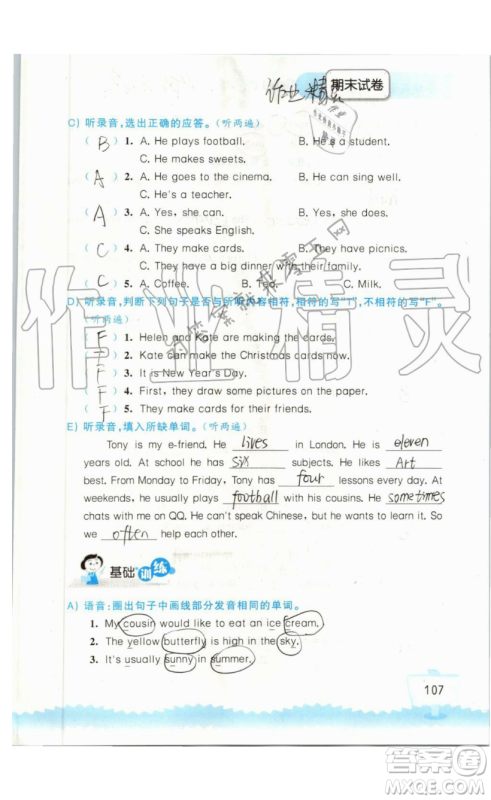 期末试卷
作业精灵
C) 听录音,选出正确的应答。(听两遍)
( B ) 1. A. He plays football. B. He's a student.
C. He makes sweets.
( A ) 2. A. He goes to the cinema. B. He can sing well.
C. He's a teacher.
( A ) 3. A. Yes, she can. B. No, he doesn't.
C. She speaks English.
4. A. They make cards. B. They have picnics.
C. They have a big dinner with their family.
5. A. Coffee. B. Tea. C. Milk.
D) 听录音,判断下列句子是否与所听内容相符,相符的写"T",不相符的写"F"。
(听两遍)
( F ) 1. Helen and Kate are making the cards.
2. Kate can make the Christmas cards now.
( F ) 3. It is New Year's Day.
( F ) 4. First, they draw some pictures on the paper.
( F ) 5. They have all the cards for their friends.
E) 听录音,填入所缺单词。(听两遍)
Tony is my e-friend. He lives in London. He is eleven
years old. At school he has six subjects. He likes Art
best. From Monday to Friday, Tony has four lessons a day. At
weekends, he usually plays football with his cousins. He sometimes
chats with me on QQ. He can't speak Chinese, but I can help him. So
we often help each other.
基础训练
A) 语音:圈出句子中画线部分发音相同的单词。
1. My cousin would like to eat an ice cream.
2. The yellow butterfly is high in the sky.
3. It's usually sunny in summer.
107
答案圈